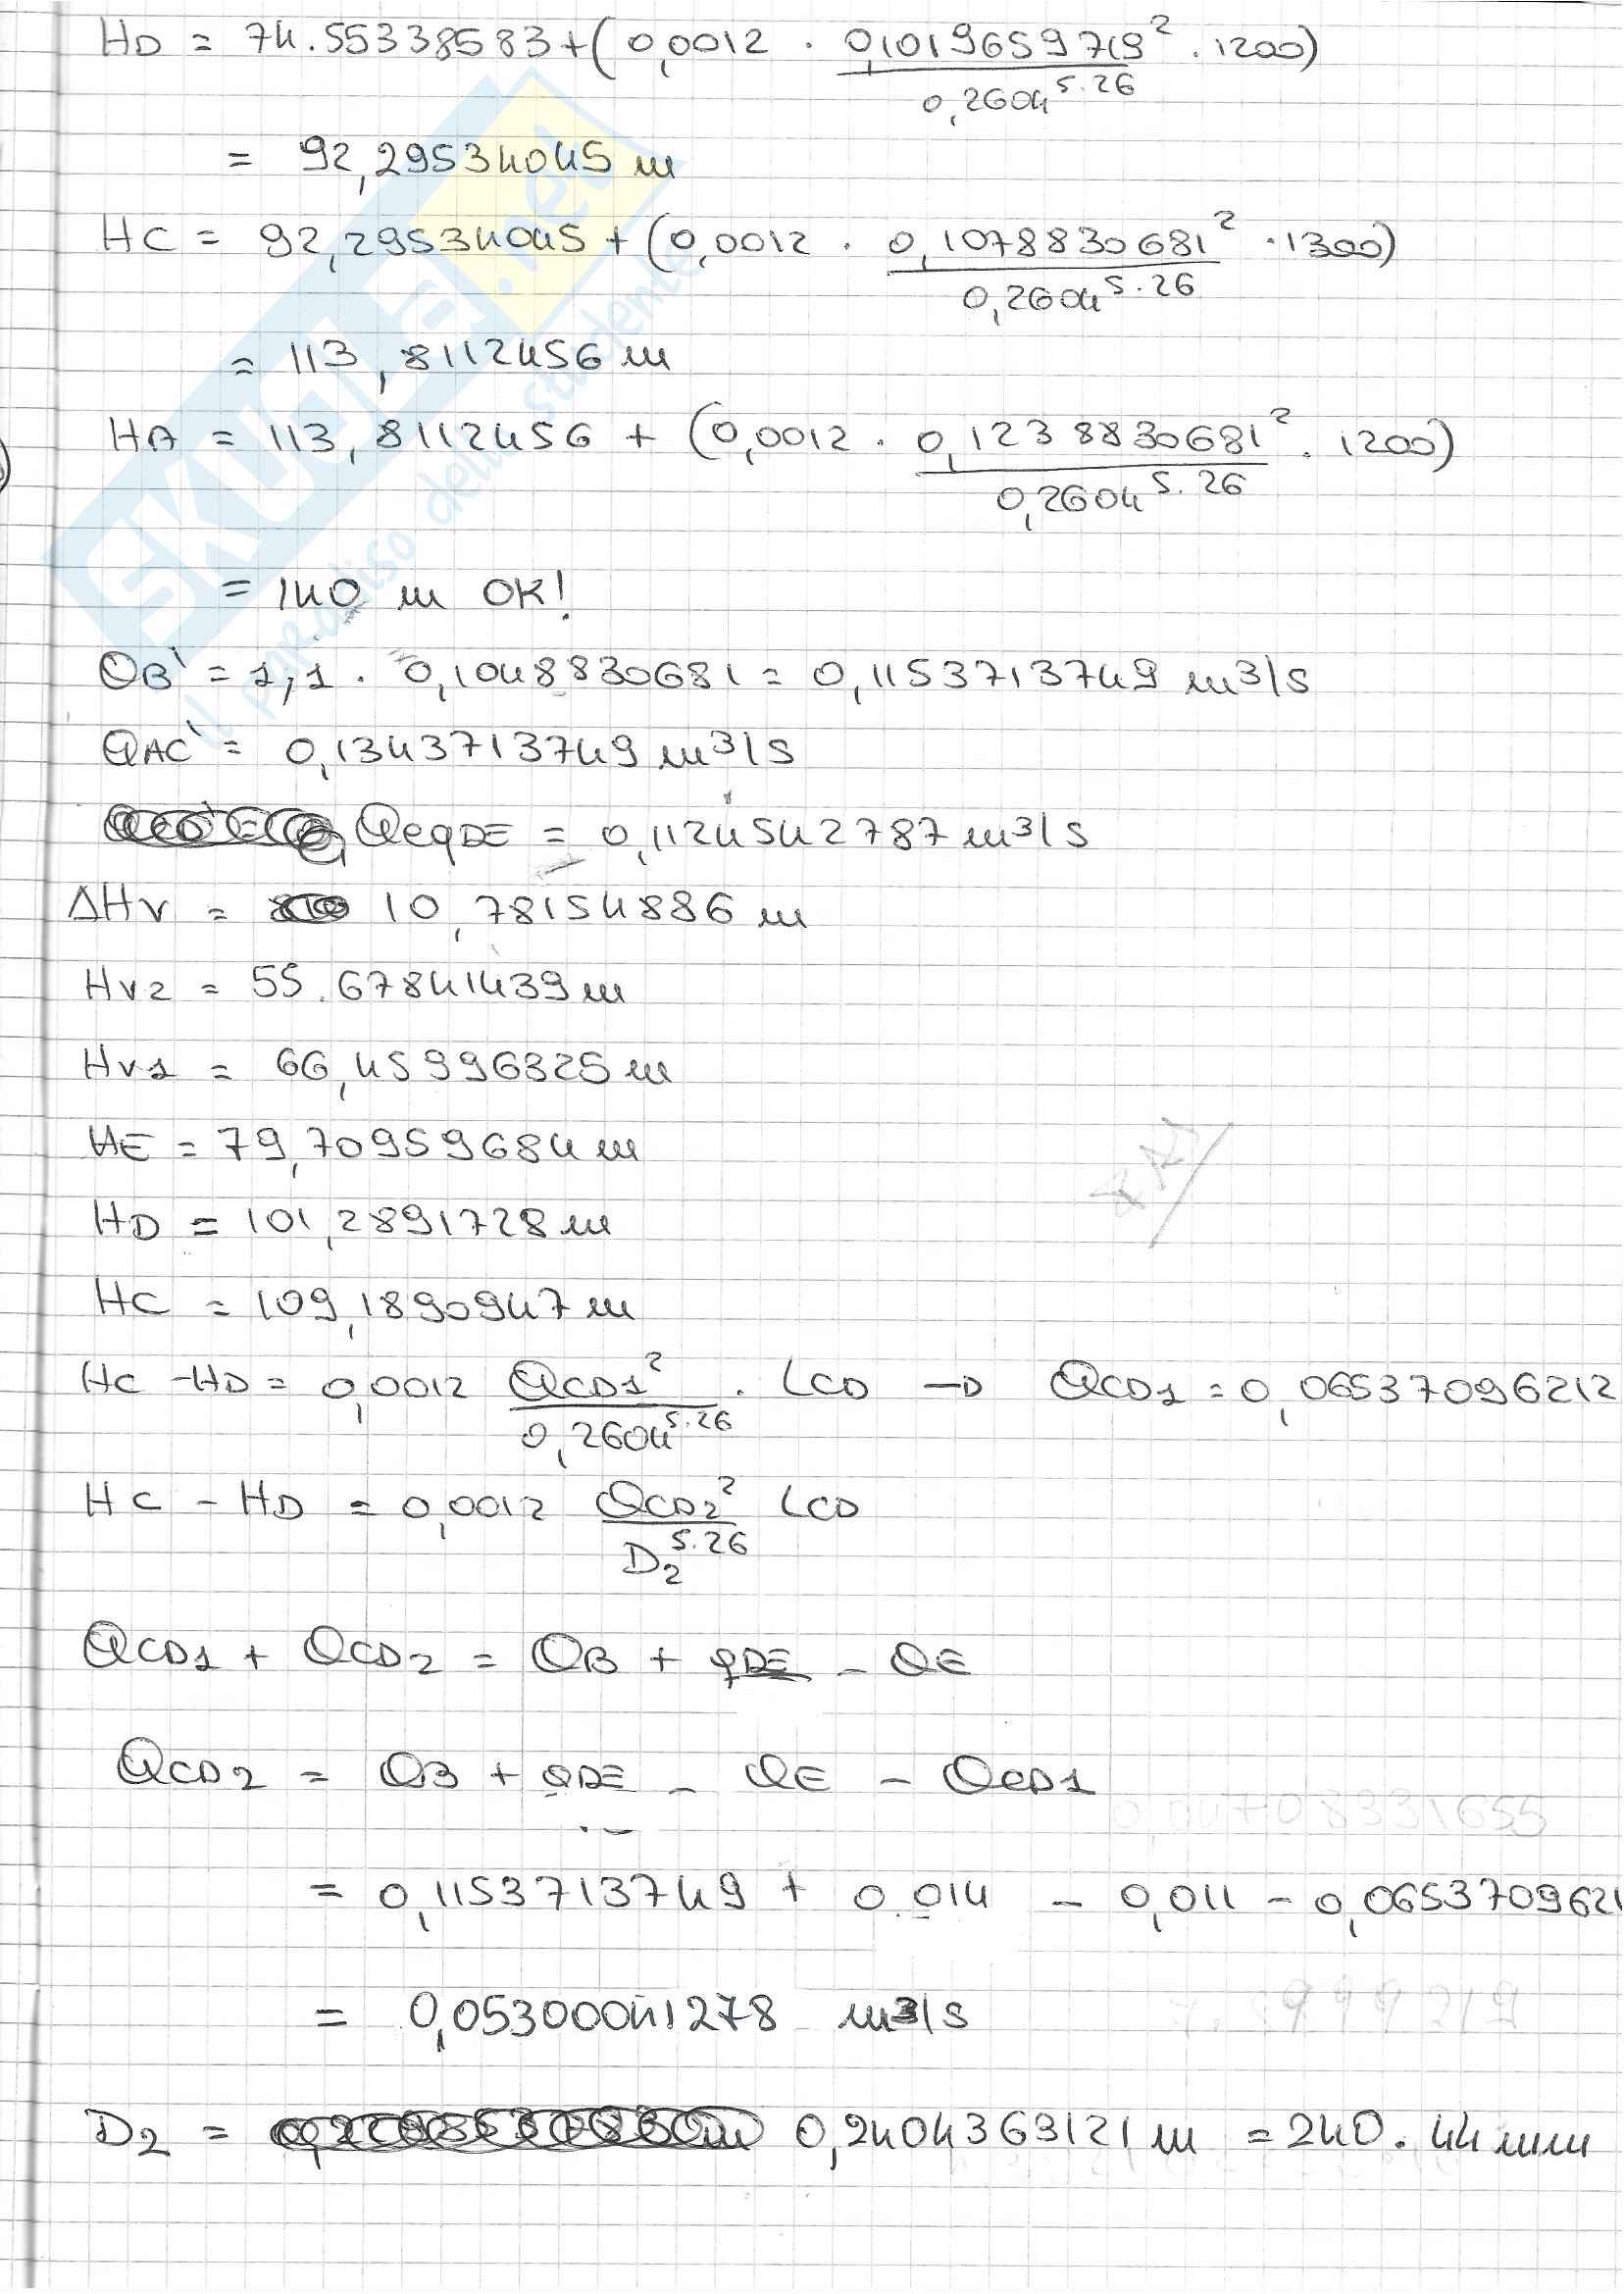 HD = 74.55338583+(0,0012 . 0,1019659719² . 1200)
0,2604^5.26
= 92,29534045 m
HC = 92,29534045 + (0,0012 . 0,1078830681² . 1300)
0,2604^5.26
= 113,8112456 m
HA = 113,8112456 + (0,0012 . 0,1238830681² . 1200)
0,2604^5.26
= 140 m OK!
QB' = 1,1 . 0,1048830681 = 0,1153713749 m3/s
QAC' = 0,1343713749 m3/s
QeqDE = 0,1124542787 m3/s
ΔHv = 10,78154886 m
Hv2 = 55.67841439 m
Hv1 = 66,45996325 m
HE = 79,70959684 m
HD = 101,2891728 m
HC = 109,1890947 m
HC - HD = 0,0012 QCD1² . LCD → QCD1 = 0,06537096212
0,2604^5.26
HC - HD = 0,0012 QCD2² LCD
D2^5.26
QCD1 + QCD2 = QB + qDE - QE
QCD2 = QB + QDE - QE - QCD1
= 0,1153713749 + 0.014 - 0,011 - 0,065370962
= 0,05300041278 m3/s
D2 = 0,2404363121 m = 240.44 mm
SKUOLA.net
il paradiso dello studente